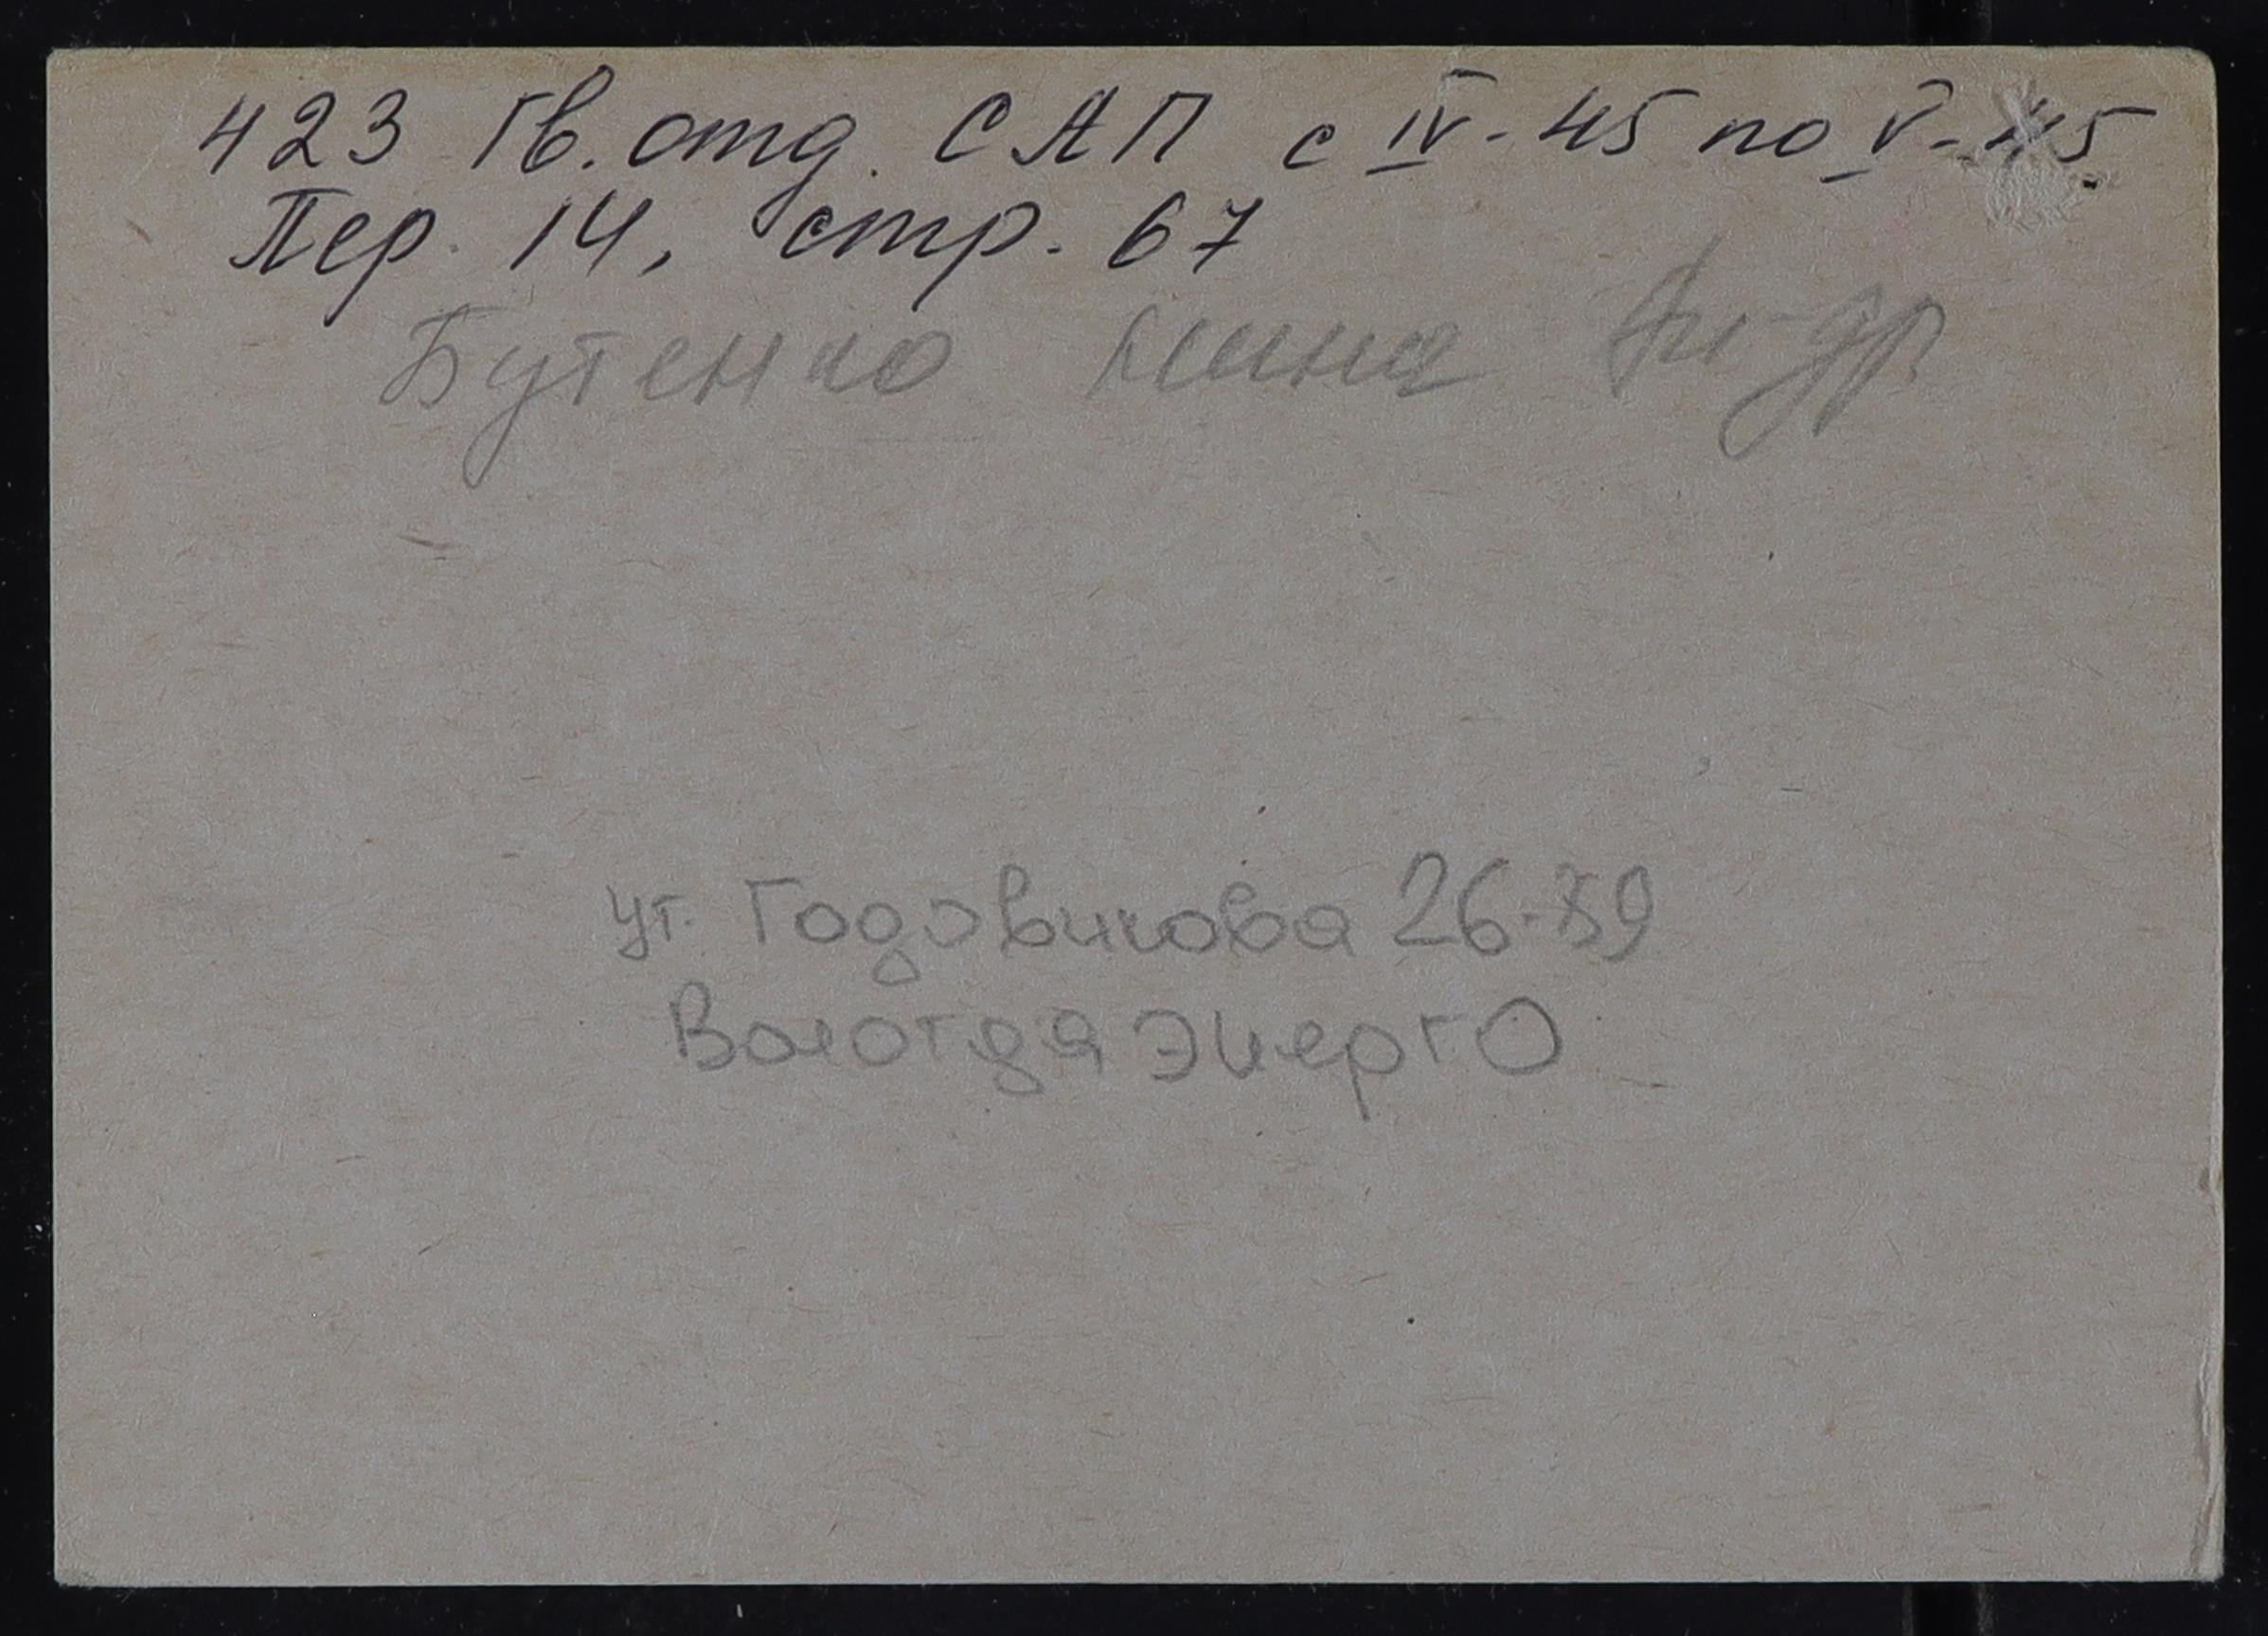 423 Гв. отд. САП с IV-45 по V-45
Пер. 14, стр. 67
Бутенко Нина Ан-др
ул. Годовикова 26-89
Вологда энерго